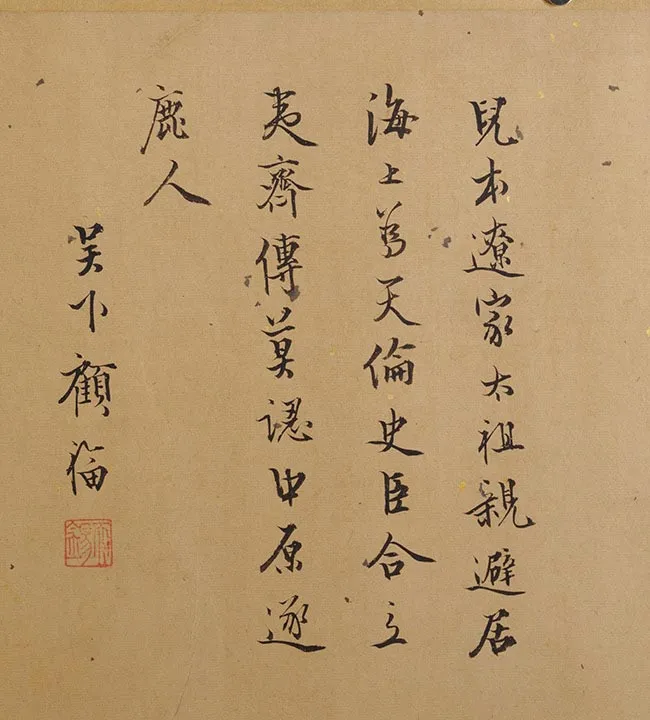 兒本遼家太祖親避居
海上篤天倫史臣合立
夷齊傳莫認中原逐
鹿人
吳下顧福